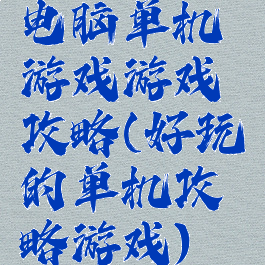 电脑单机
游戏游戏
攻略(好玩
的单机攻
略游戏)